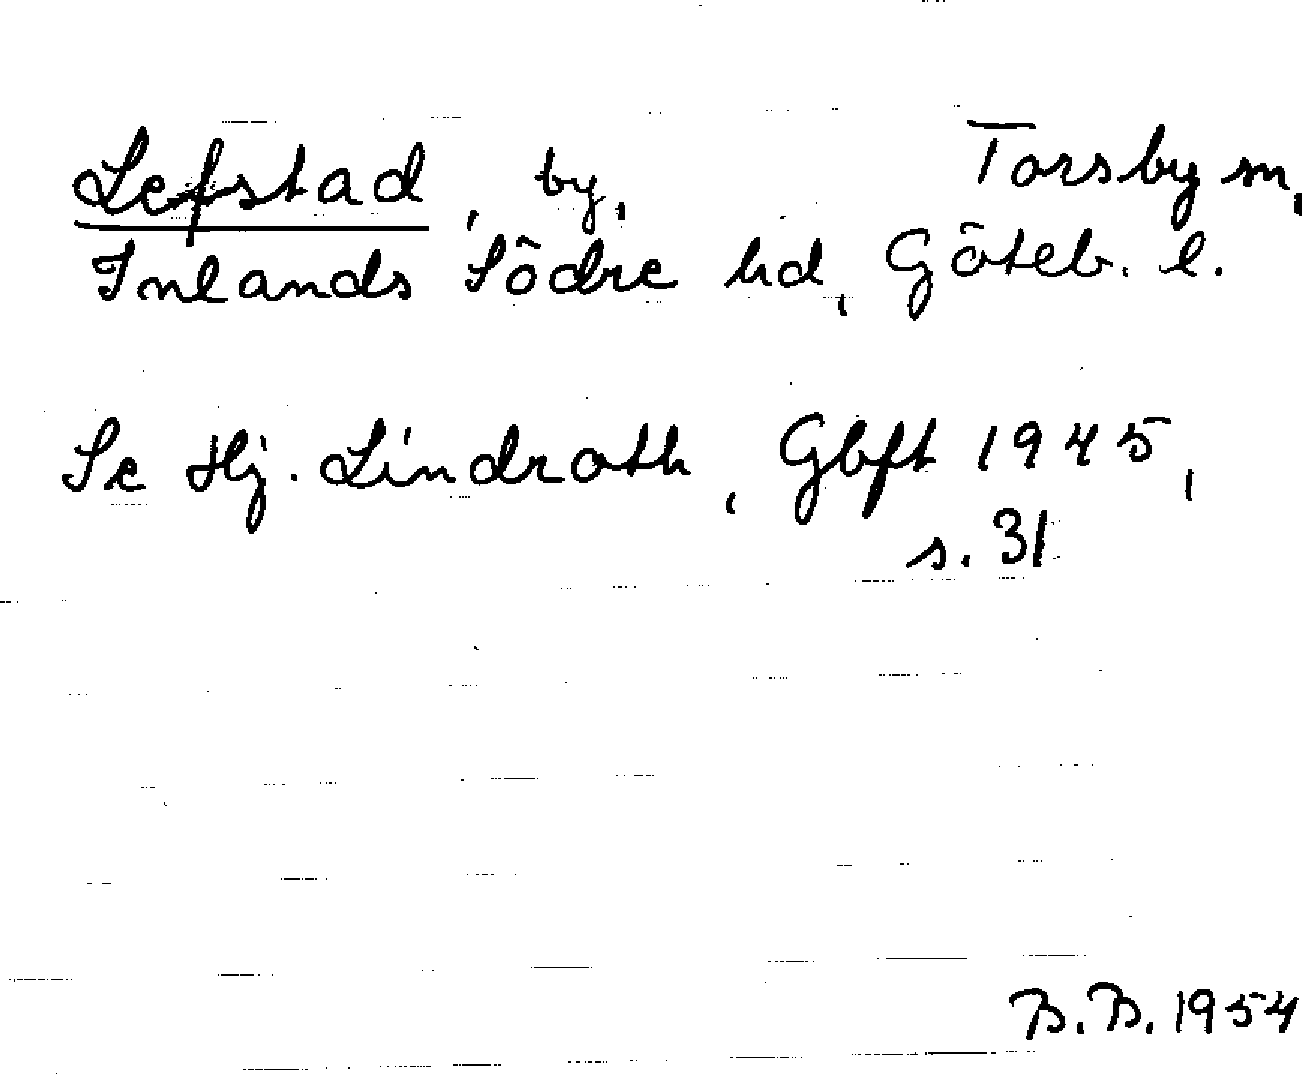 Lefstad, by, Torsby sn,
Inlands Södre hd, Göteb. l.
Se Hj. Lindroth, Gbft 1945,
s. 31
B.B. 1954